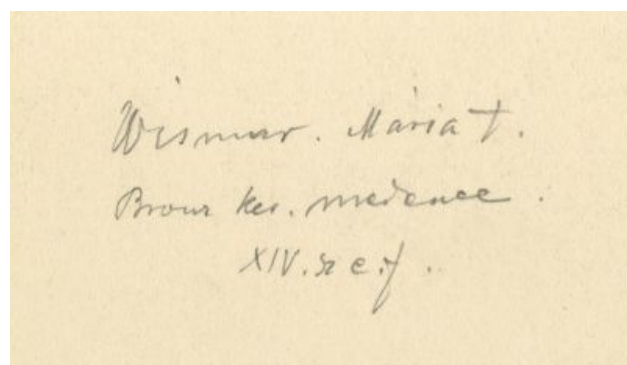 Wismar. Mária t.
Bronz ker. medence.
XIV. sz e. f.